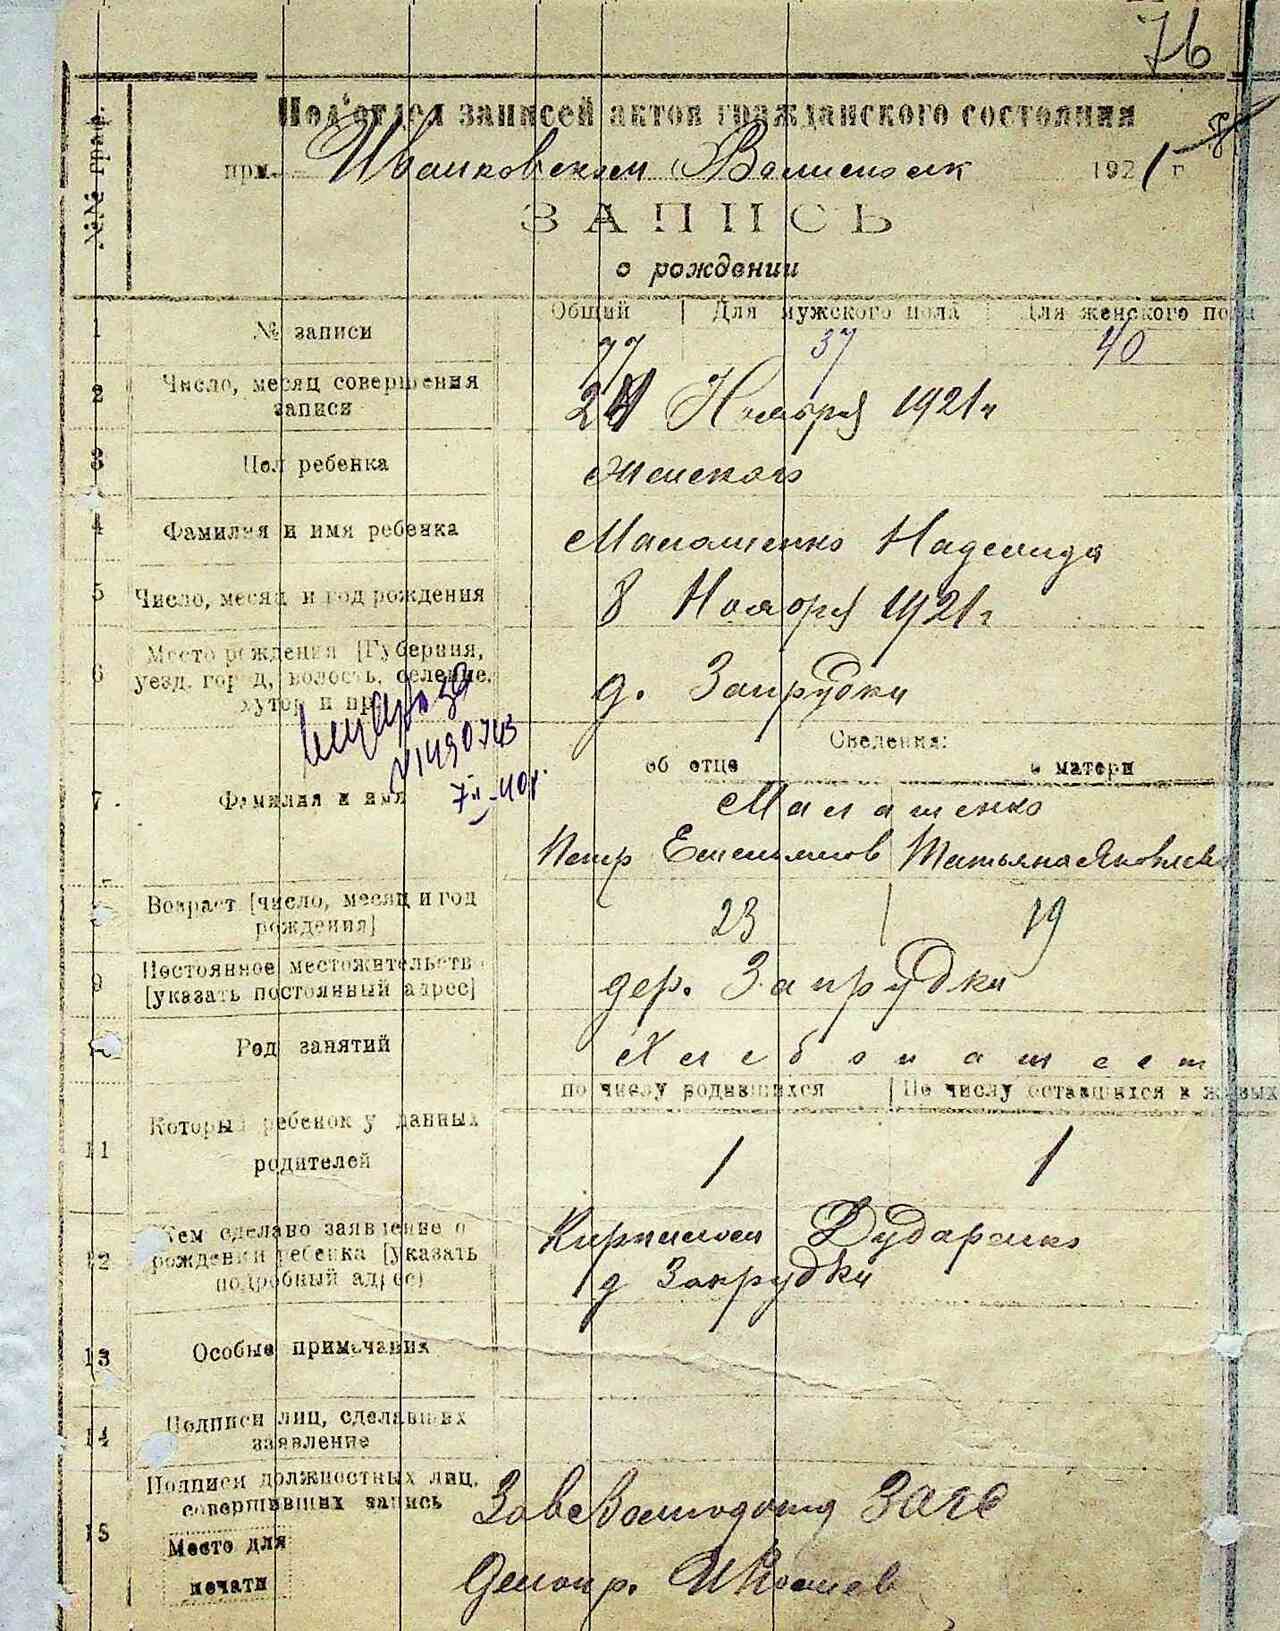 76
Под'отдел записей актов гражданского состояния
при Иваньковском Волисполк 1921 г
№№ граф.
ЗАПИСЬ
о рождении
Общий | Для мужского пола | Для женского пола
1 № записи 77 37 40
2 Число, месяц совершения записи 24 Ноября 1921 г
3 Пол ребенка Женского
4 Фамилия и имя ребенка Малашенко Надежида
5 Число, месяц и год рождения 8 Ноября 1921 г
6 Место рождения [Губерния, уезд, город, волость, селение, хутор и пр. д. Запрудки
1490743
7 II-40г.
Сведения:
об отце о матери
7. Фамилия и имя Малашенко
Петр Емельянов Татьяна Яковлева
Возраст [число, месяц и год рождения] 23 19
9 Постоянное местожительство [указать постоянный адрес] дер. Запрудки
Род занятий Хлебопашест
по числу родившихся | По числу оставшихся в живых
11 Который ребенок у данных родителей 1 1
12 Кем сделано заявление о рождении ребенка [указать подробный адрес) Дударенко
д Запрудки
13 Особые примечания
14 Подписи лиц, сделавших заявление
15 Подписи должностных лиц, совершивших запись
Делопр.
Место для
печати